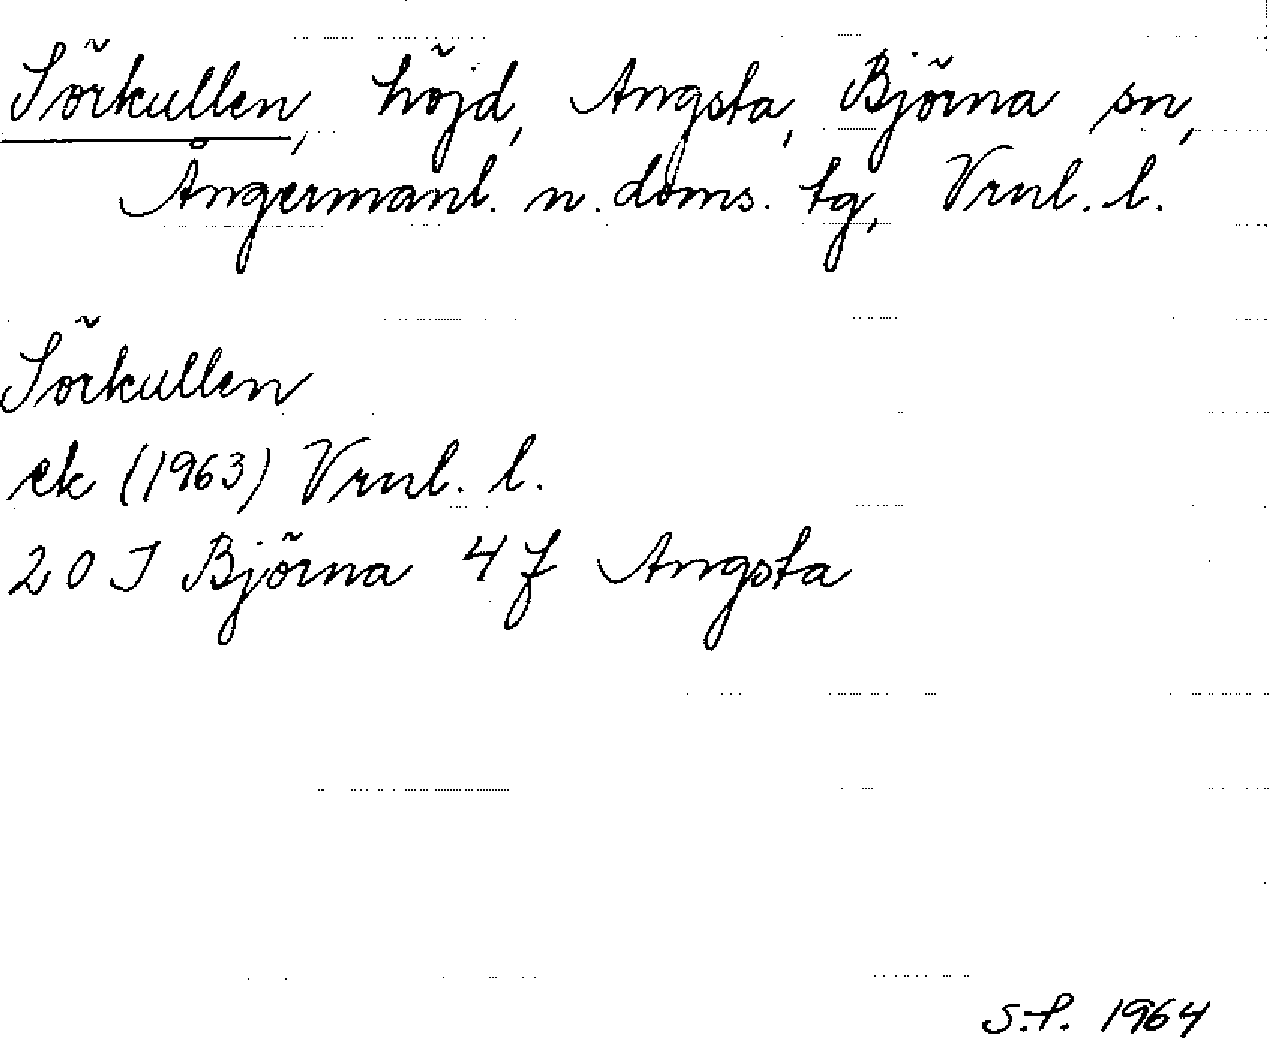 Sörkullen, höjd, Angsta, Björna sn,
Ångermanl. n. doms. tg, Vrnl. l.
Sörkullen
ek (1963) Vrnl. l.
20 J Björna 4 f Angsta
S.f. 1964